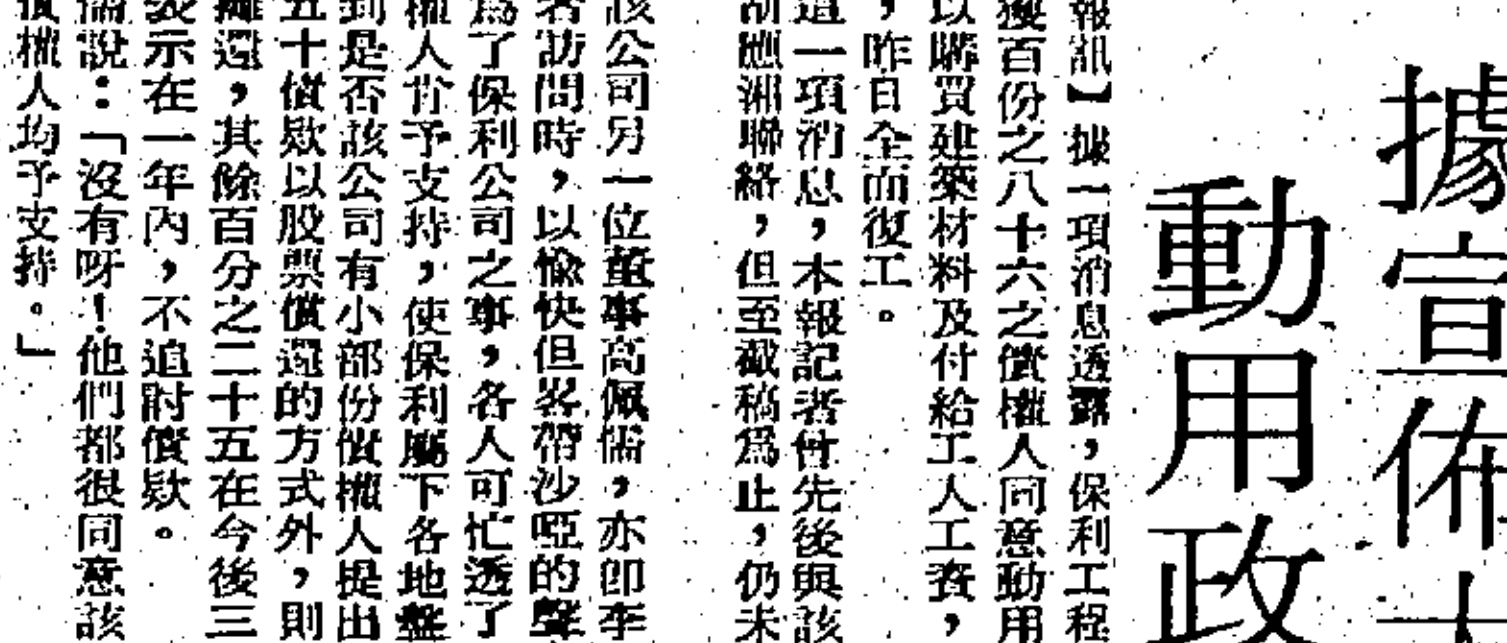 據宣佈
動用政
報訊】據一項消息透露，保利工程
獲百份之八十六之債權人同意動用
以購買建築材料及付給工人工資，
，昨日全面復工。
這一項消息，本報記者曾先後與該
胡應湘聯絡，但至截稿爲止，仍未
該公司另一位董事高佩儒，亦卽李
者訪問時，以愉快但畧帶沙啞的聲
爲了保利公司之事，各人可忙透了
權人肯予支持，使保利屬下各地盤
到是否該公司有小部份債權人提出
五十債欵以股票償還的方式外，則
攤還，其餘百分之二十五在今後三
表示在一年內，不追討債欵。
儒說：「沒有呀！他們都很同意該
債權人均予支持。」